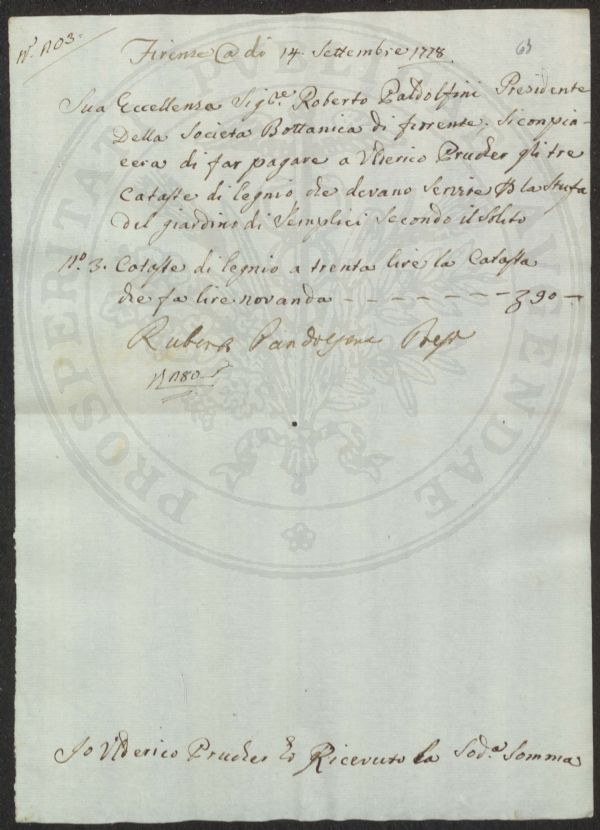 N.º 1103.
Firenze @ di 14. Settembre 1778.
63
Sua Eccellenza Sig:re Roberto Paldolfini Presidente
Della Società Bottanica di firrente; Si conpia-
cera di far pagare a Vlderico Prucher gli tre
Cataste di legnio che devano Servire p la Stufa
del giardino di Semplici Secondo il Solito
Nº. 3. Cataste di legnio a trenta lire la Catasta
che fa lire novanda - - - - - - - - 90 -
Rubert Pandolfini Presid
N 180
PROSPERITATI PUBLICAE AUGENDAE
Io Vlderico Prucher ho Ricevuto la Sod.a Somma